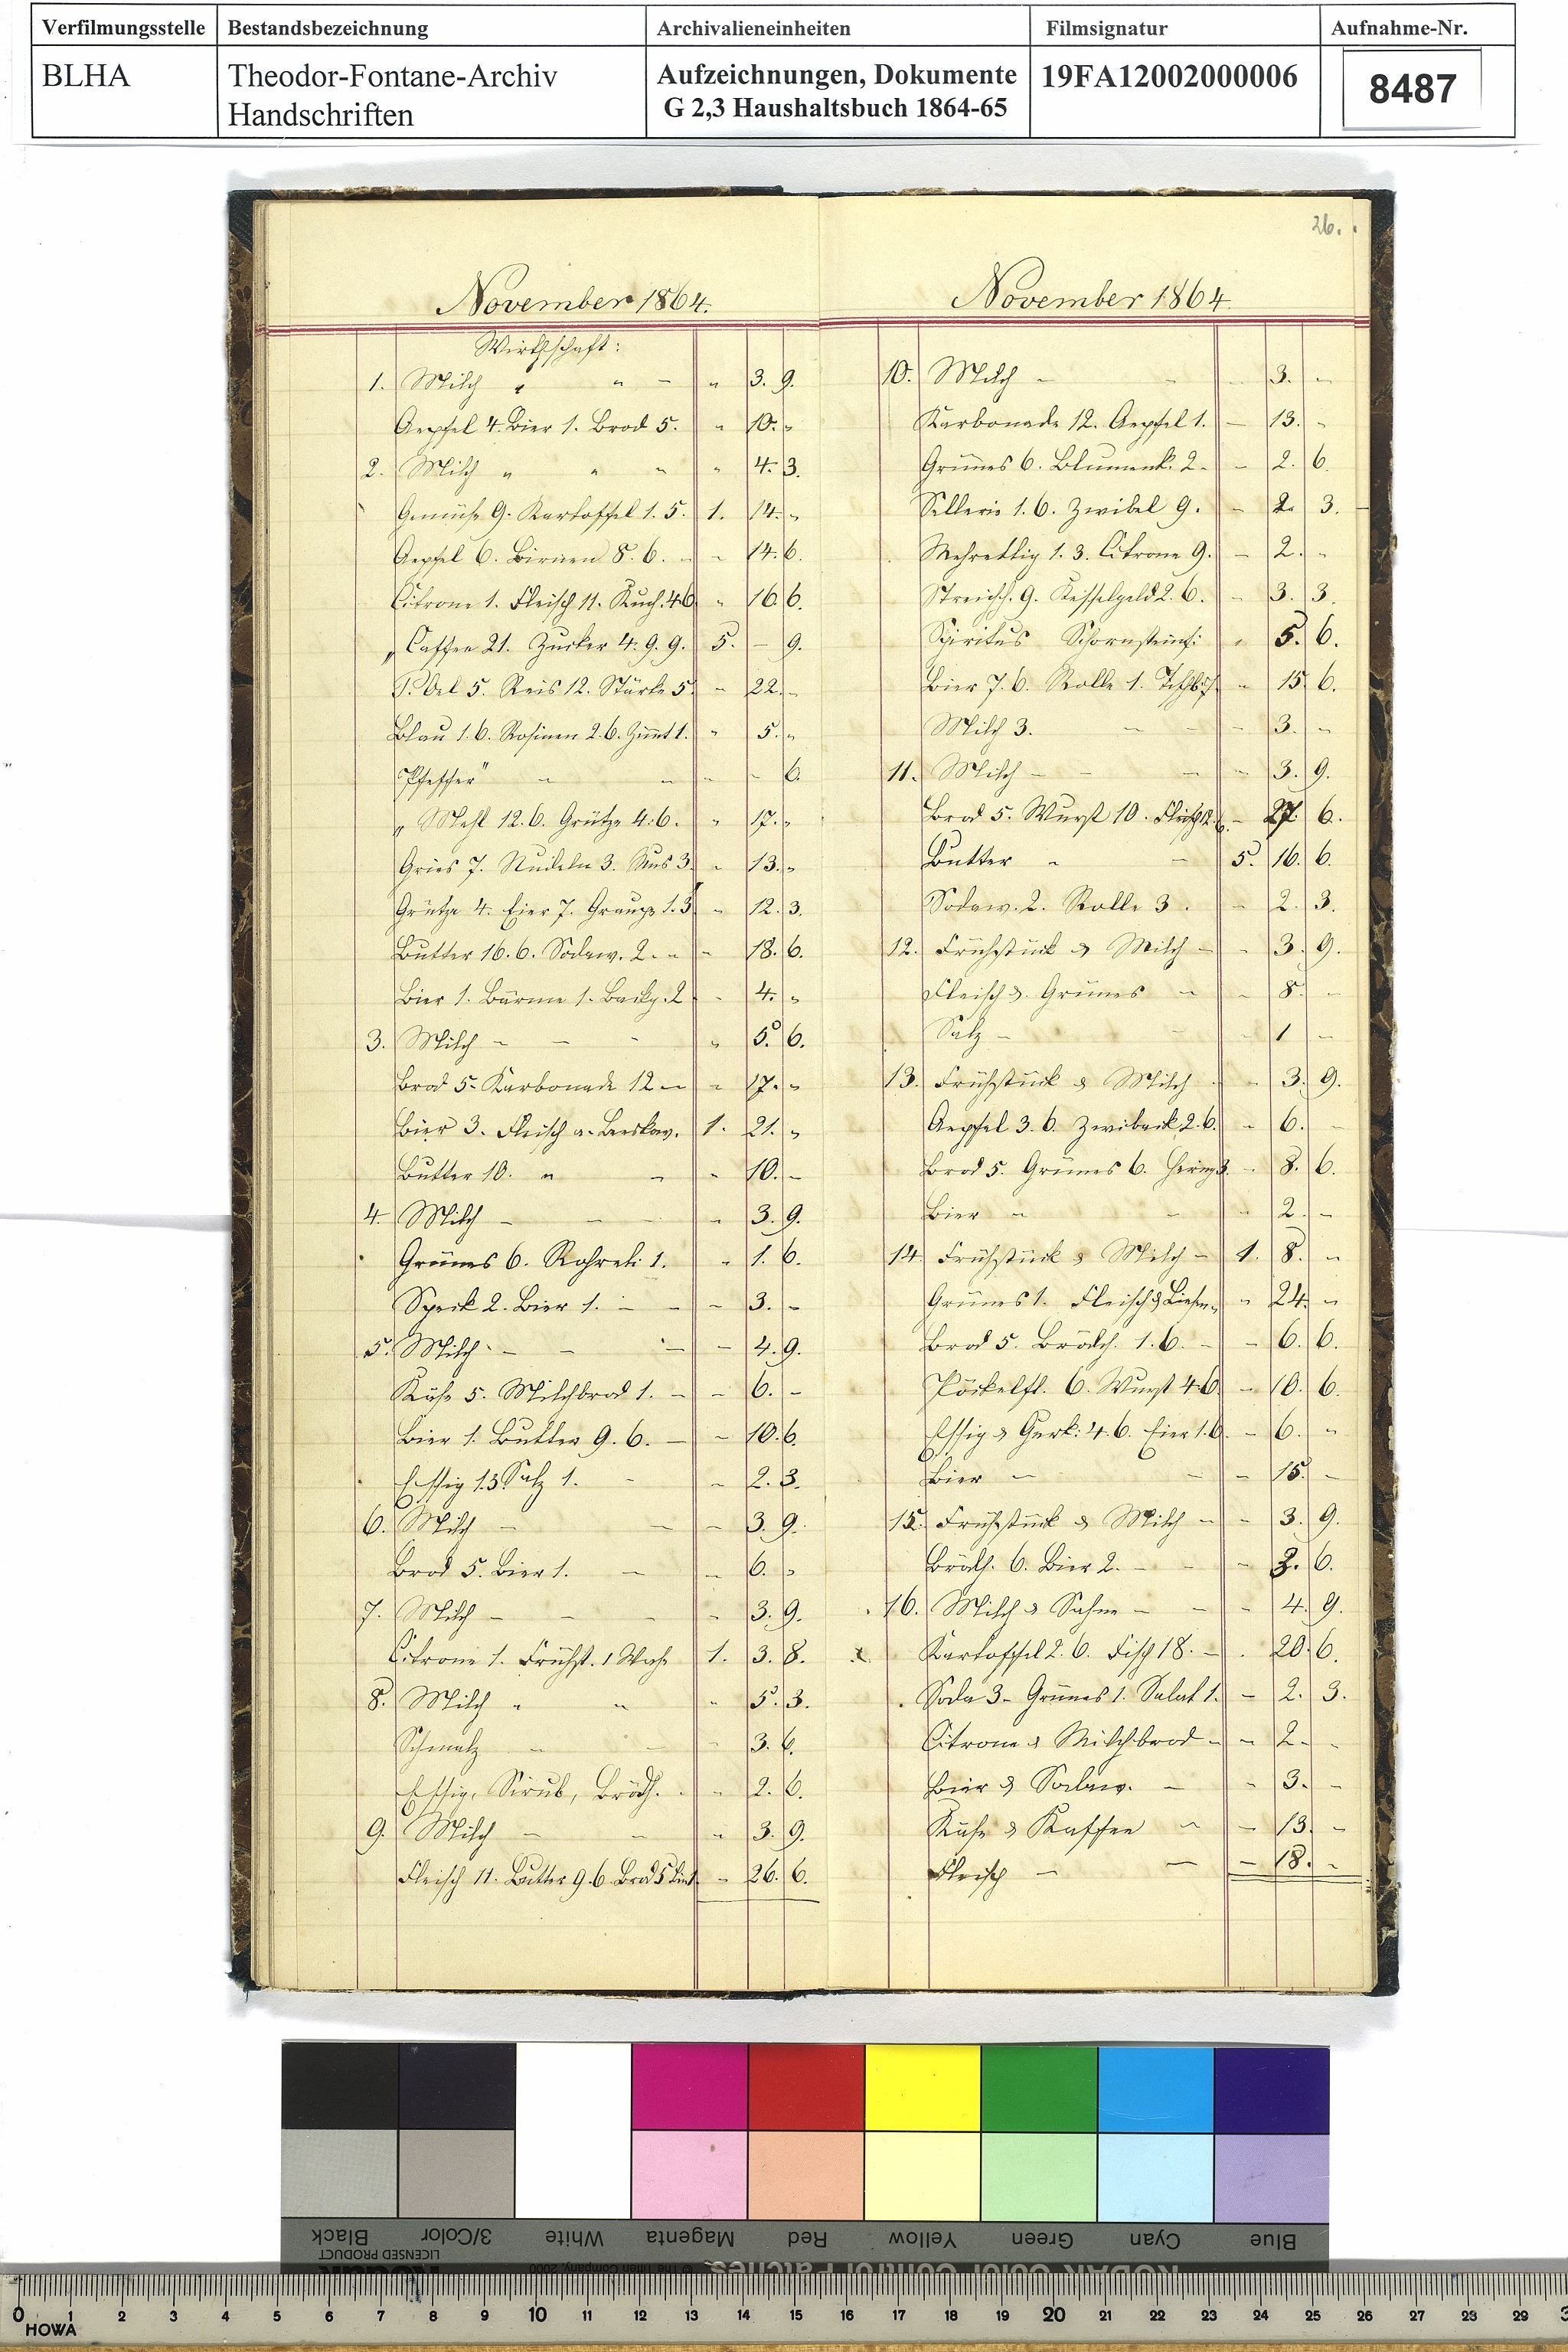 Verfilmungsstelle Bestandsbezeichnung Archivalieneinheiten Filmsignatur Aufnahme-Nr.
BLHA Theodor-Fontane-Archiv Aufzeichnungen, Dokumente 19FA12002000006 8487
Handschriften G 2,3 Haushaltsbuch 1864-65
November 1864.
Wirthschaft:
1. Milch " " - " 3. 9.
Aepfel 4. Bier 1. Brod 5. " 10. "
2. Milch " " " " 4. 3.
Gemüse 9. Kartoffel 1. 5. 1. 14. "
Aepfel 6. Birnen 8. 6. - - 14. 6.
Citrone 1. Fleisch 11. Kuch. 4 6 " 16 6.
" Caffee 21. Zucker 4. 9. 9. 5. - 9.
Oel 5. Reis 12. Stärke 5. - 22. -
Blau 1. 6. Rosinen 2. 6. Zimmt 1. " 5. "
"Pfeffer" - - - - 6.
" Mehl 12. 6. Grütze 4. 6. " 17. "
Gries 7. Nudeln 3. Mus 3. " 13. "
Grütze 4. Eier 7. Graupe 1. 3 - 12. 3.
Butter 16. 6. Sodaw. 2. - - - 18. 6.
Bier 1. Bärme 1. Backp. 2 - 4. "
3. Milch - - - " 5. 6.
Brod 5. Karbonade 12 - - - 17. "
Bier 3. Fleisch a. 1. 21. "
Butter 10. " - " 10. -
4. Milch - - - " 3. 9.
Grünes 6. 1. " 1. 6.
Speck 2. Bier 1. - - - 3. -
5. Milch - - - - 4. 9.
Käse 5. Milchbrod 1. - - 6. -
Bier 1. Butter 9. 6. - - 10. 6.
Essig 1. 3. Salz 1. - - 2. 3.
6. Milch - - - 3. 9.
Brod 5. Bier 1. - - 6. "
7. Milch - - - - 3. 9.
Citrone 1. Frühst. 1 Woche 1. 3. 8.
8. Milch " " " 5. 3.
Schmalz - - - 3. 6.
Essig, Sirub, Brödch. - - 2. 6.
9. Milch - - " 3. 9.
Fleisch 11. Butter 9. 6 Brod 5 - 26. 6.
26.
November 1864
10. Milch - - - 3. -
Karbonade 12. Aepfel 1. - 13. -
Grünes 6. Blumenk. 2 - - 2. 6.
Sellerie 1. 6. Zwibel 9. - 2. 3. -
Mehrettig 1. 3. Citrone 9. - 2. "
Streichh. 9. Kesselgeld 2. 6. - 3. 3.
Spiritus Schornsteinf: " 5. 6.
Bier 7. 6. Rolle 1. - 15 6.
Milch 3. - - - 3. -
11. Milch - - - - 3. 9.
Brod 5. Wurst 10. Fleisch 12. 6. - 27. 6.
Butter - - 5. 16. 6.
Sodaw. 2. Rolle 3. - 2. 3.
12. Frühstück & Milch - - 3. 9.
Fleisch & Grünes - - 8. -
Salz - - - 1 -
13. Frühstück & Milch - - 3. 9.
Aepfel 3. 6. Zwiback 2. 6. - 6. -
Brod 5. Grünes 6. Hering 3. - 8. 6.
Bier - - - 2. -
14. Frühstück & Milch - 1. 8. "
Grünes 1. Fleisch & " 24. -
Brod 5. Brödch. 1. 6. - - 6. 6.
Pöckelfl. 6. Wurst 4. 6. - 10. 6.
Essig & Gurk: 4. 6. Eier 1. 6. - 6. "
Bier - - - 15. -
15. Frühstück & Milch - - 3. 9.
Brödch. 6. Bier 2. - - - 3. 6.
16. Milch & Sahne - - - 4. 9.
x. Kartoffel 2. 6. Fisch 18. - . 20. 6.
Soda 3 - Grünes 1. Salat 1. - 2. 3.
Citrone & Milchbrod - - 2. -
Bier & Sodaw. - - 3. -
Käse & Kaffee - - 13. -
Fleisch - - - 18. -
Black 3/Color White Magenta Red Yellow Green Cyan Blue
LICENSED PRODUCT
Kodak © The Tiffen Company, 2000 KODAK Color Control Patches
0 1 2 3 4 5 6 7 8 9 10 11 12 13 14 15 16 17 18 19 20 21 22 23 24 25 26 27 28 29 3
HOWA